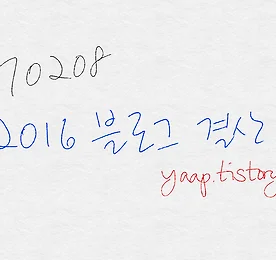 70208
2016 블로그 결산
yaap.tistory